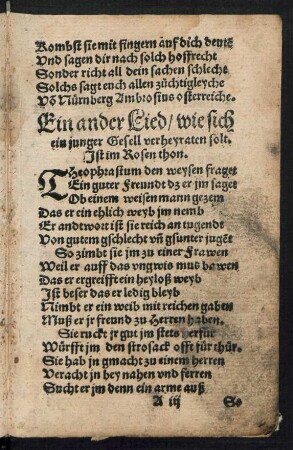 Kombst sie mit fingern auf dich deutẽ
Vnd sagen dir nach solch hoffrecht
Sonder richt all dein sachen schlecht
Solchs sagt euch allen züchtigleyche
Võ Nürnberg Ambrosius osterreiche.
Ein ander Lied / wie sich
ein junger Gesell verheyraten solt.
Ist im Rosen thon.
THeophrastum den weysen fraget
Ein guter Freundt dz er jm saget
Ob einem weisen mann gezem
Das er ein ehlich weyb jm nemb
Er andtwort ist sie reich an tugendt
Von gutem gschlecht vñ gsunter jugẽt
So zimbt sie jm zu einer Frawen
Weil er auff das vngwis mus bawen
Das er ergreifft ein heyloß weyb
Ist beser das er ledig bleyb
Nimbt er ein weib mit reichen gaben
Muß er jr freund zu Herren haben.
Sie ruckt jr gut jm stets herfür
Würfft jm den strosack offt für thür.
Sie hab jn gmacht zu einem herren
Veracht jn bey nahen vnd ferren
Sucht er jm denn ein arme auß
A iij So